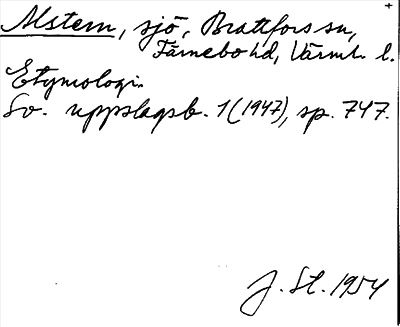 Alstern, sjö, Brattfors sn,
Färnebo hd, Värml. l.
Etymologi.
Sv. uppslagsb. 1 (1947), sp. 747.
J. St. 1954